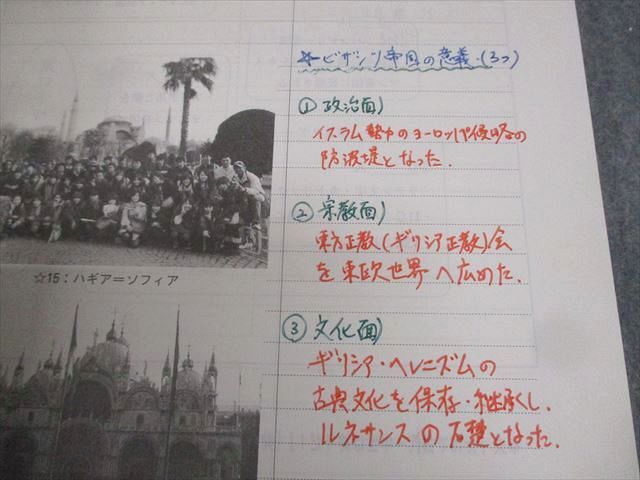 ☆ビザンツ帝国の意義・(3つ)
① 政治面)
イスラム勢力のヨーロッパ侵略の
防波堤となった.
② 宗教面)
東方正教(ギリシア正教)会
を東欧世界へ広めた.
③ 文化面)
ギリシア・ヘレニズムの
古典文化を保存・継承し,
ルネサンスの石礎となった.
☆15:ハギア=ソフィア